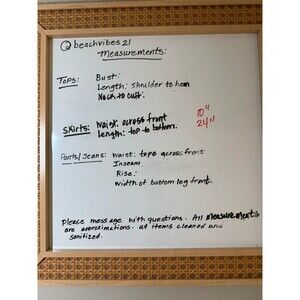 @beachvibes21
Measurements:
Tops: Bust:
Length: Shoulder to hem
Neck to cuff:
Skirts: Waist: across front 10"
Length: top to bottom. 24"
Pants/Jeans: Waist: tape across front
Inseam
Rise:
Width of bottom leg front.
Please message with questions. All measurements
are approximations. All items cleaned and
sanitized.